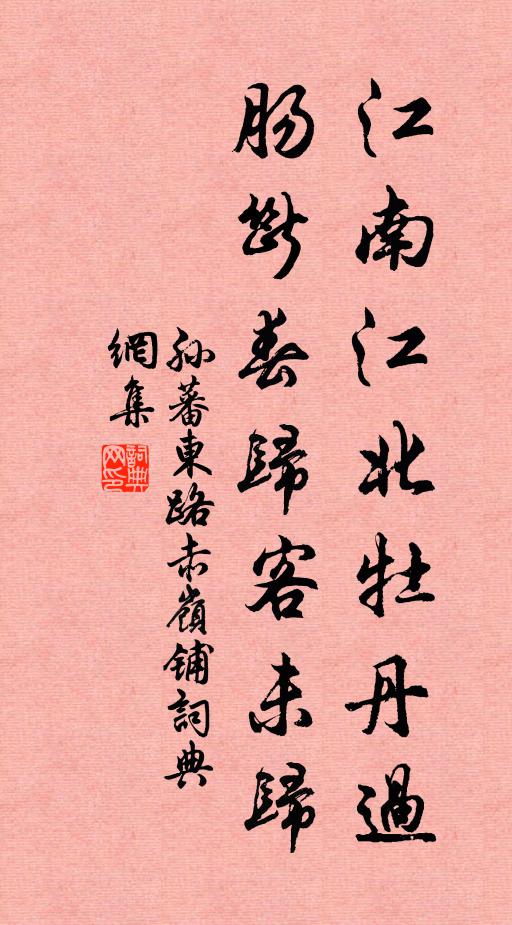 江南江北牡丹過
腸斷春歸客未歸
孫蕃東路赤嶺鋪詞典
網集
詞典
网印